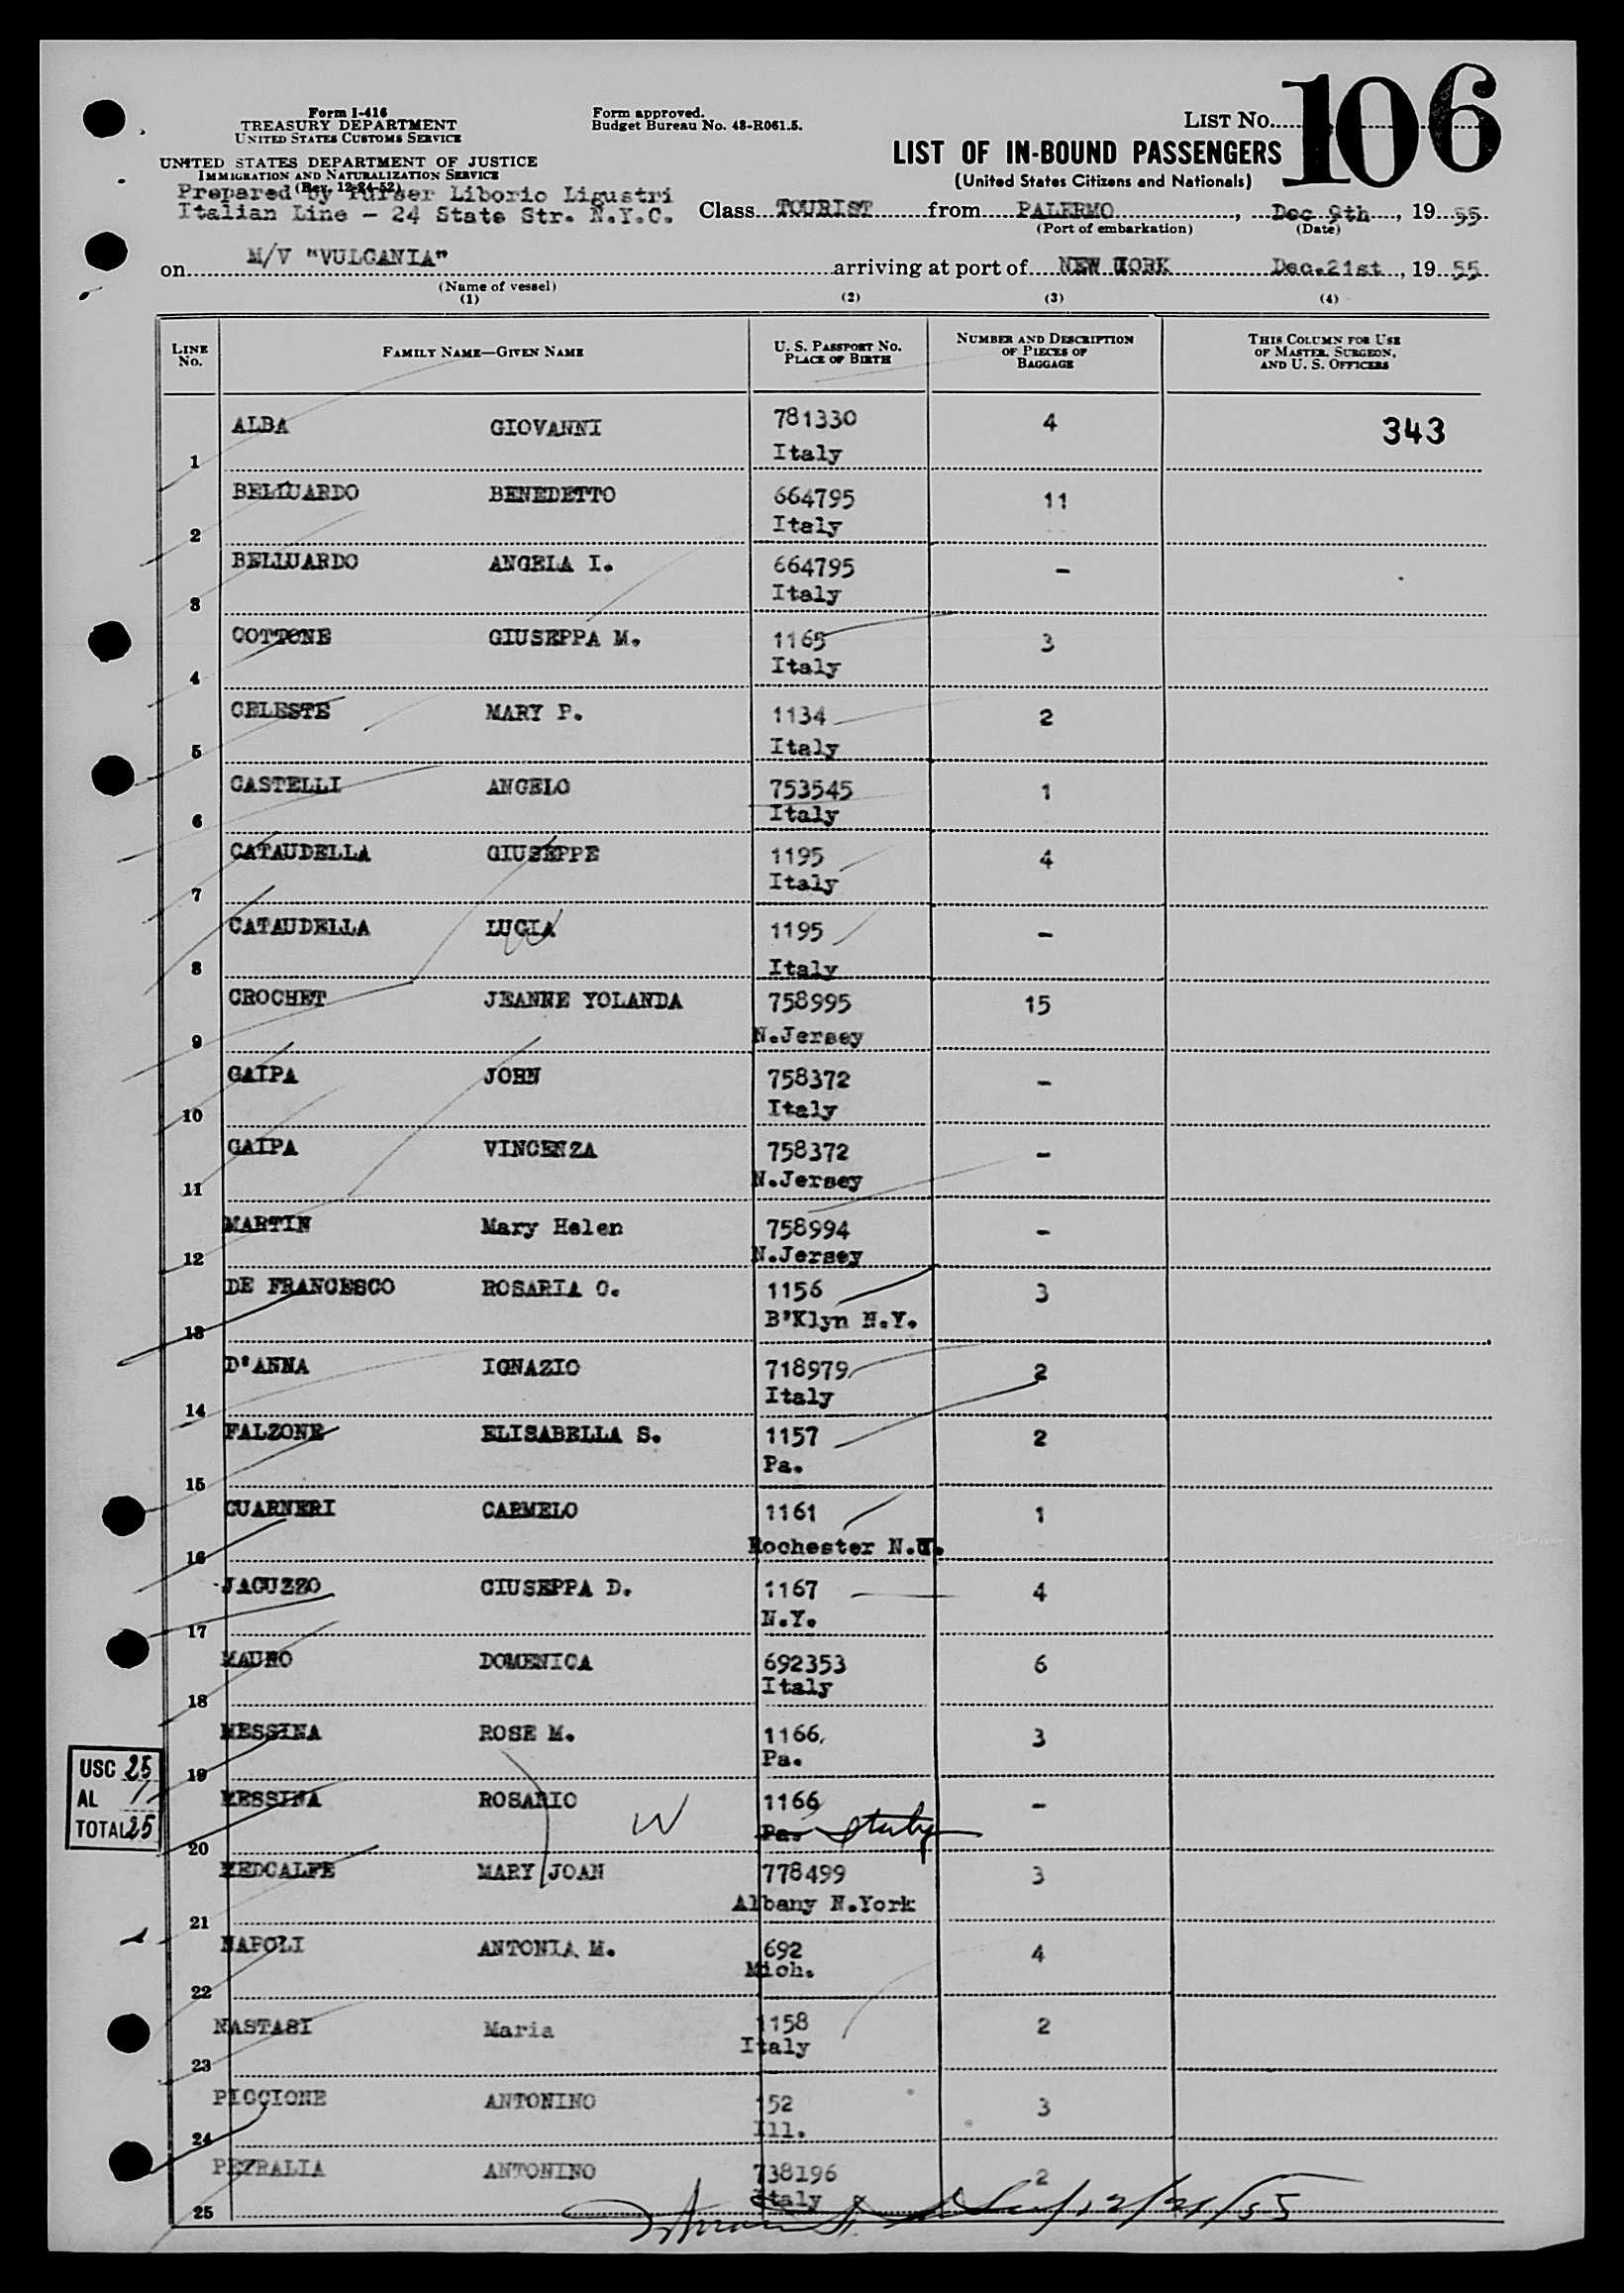 Form I-416
TREASURY DEPARTMENT
UNITED STATES CUSTOMS SERVICE
UNITED STATES DEPARTMENT OF JUSTICE
IMMIGRATION AND NATURALIZATION SERVICE
(Rev. 12-24-52)
Prepared by Purser Liborio Ligustri
Italian Line - 24 State Str. N.Y.C.
Form approved.
Budget Bureau No. 43-R061.5.
LIST NO. 106
LIST OF IN-BOUND PASSENGERS
(United States Citizens and Nationals)
Class TOURIST from PALERMO, Dec 9th, 19 55
(Port of embarkation) (Date)
on M/V "VULCANIA" arriving at port of NEW YORK Dec.21st, 19 55
(Name of vessel)
(1) (2) (3) (4)
LINE No. FAMILY NAME—GIVEN NAME U. S. PASSPORT NO. PLACE OF BIRTH NUMBER AND DESCRIPTION OF PIECES OF BAGGAGE THIS COLUMN FOR USE OF MASTER, SURGEON, AND U. S. OFFICERS
1 ALBA GIOVANNI 781330 4 343
Italy
2 BELLUARDO BENEDETTO 664795 11
Italy
3 BELLUARDO ANGELA I. 664795 -
Italy
4 COTTONE GIUSEPPA M. 1165 3
Italy
5 CELESTE MARY P. 1134 2
Italy
6 CASTELLI ANGELO 753545 1
Italy
7 CATAUDELLA GIUSEPPE 1195 4
Italy
8 CATAUDELLA LUCIA 1195 -
Italy
9 CROCHET JEANNE YOLANDA 758995 15
N.Jersey
10 GAIPA JOHN 758372 -
Italy
11 GAIPA VINCENZA 758372 -
N.Jersey
12 MARTIN Mary Helen 758994 -
N.Jersey
13 DE FRANCESCO ROSARIA C. 1156 3
B'Klyn N.Y.
14 D'ANNA IGNAZIO 718979 2
Italy
15 FALZONE ELISABELLA S. 1157 2
Pa.
16 GUARNERI CARMELO 1161 1
Rochester N.Y.
17 JACUZZO GIUSEPPA D. 1167 4
N.Y.
18 MAURO DOMENICA 692353 6
Italy
19 MESSINA ROSE M. 1166 3
Pa.
20 MESSINA ROSARIO W 1166 -
Pa. Italy
21 MEDCALFE MARY JOAN 778499 3
Albany N.York
22 NAPOLI ANTONIA M. 692 4
Mich.
23 NASTASI Maria 1158 2
Italy
24 PICCIONE ANTONINO 152 3
Ill.
25 PETRALIA ANTONINO 738196 2
Italy
12/21/55
USC 25
AL /
TOTAL 25